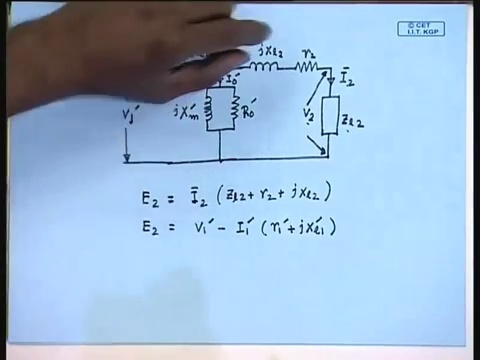 © CET
I.I.T. KGP
jxl2 r2
I0′ Ī2
V1′ jXm′ R0′ V2 Zl2
E2 = Ī2 (Zl2 + r2 + jxl2)
E2 = V1′ - I1′ (r1′ + jxl1′)